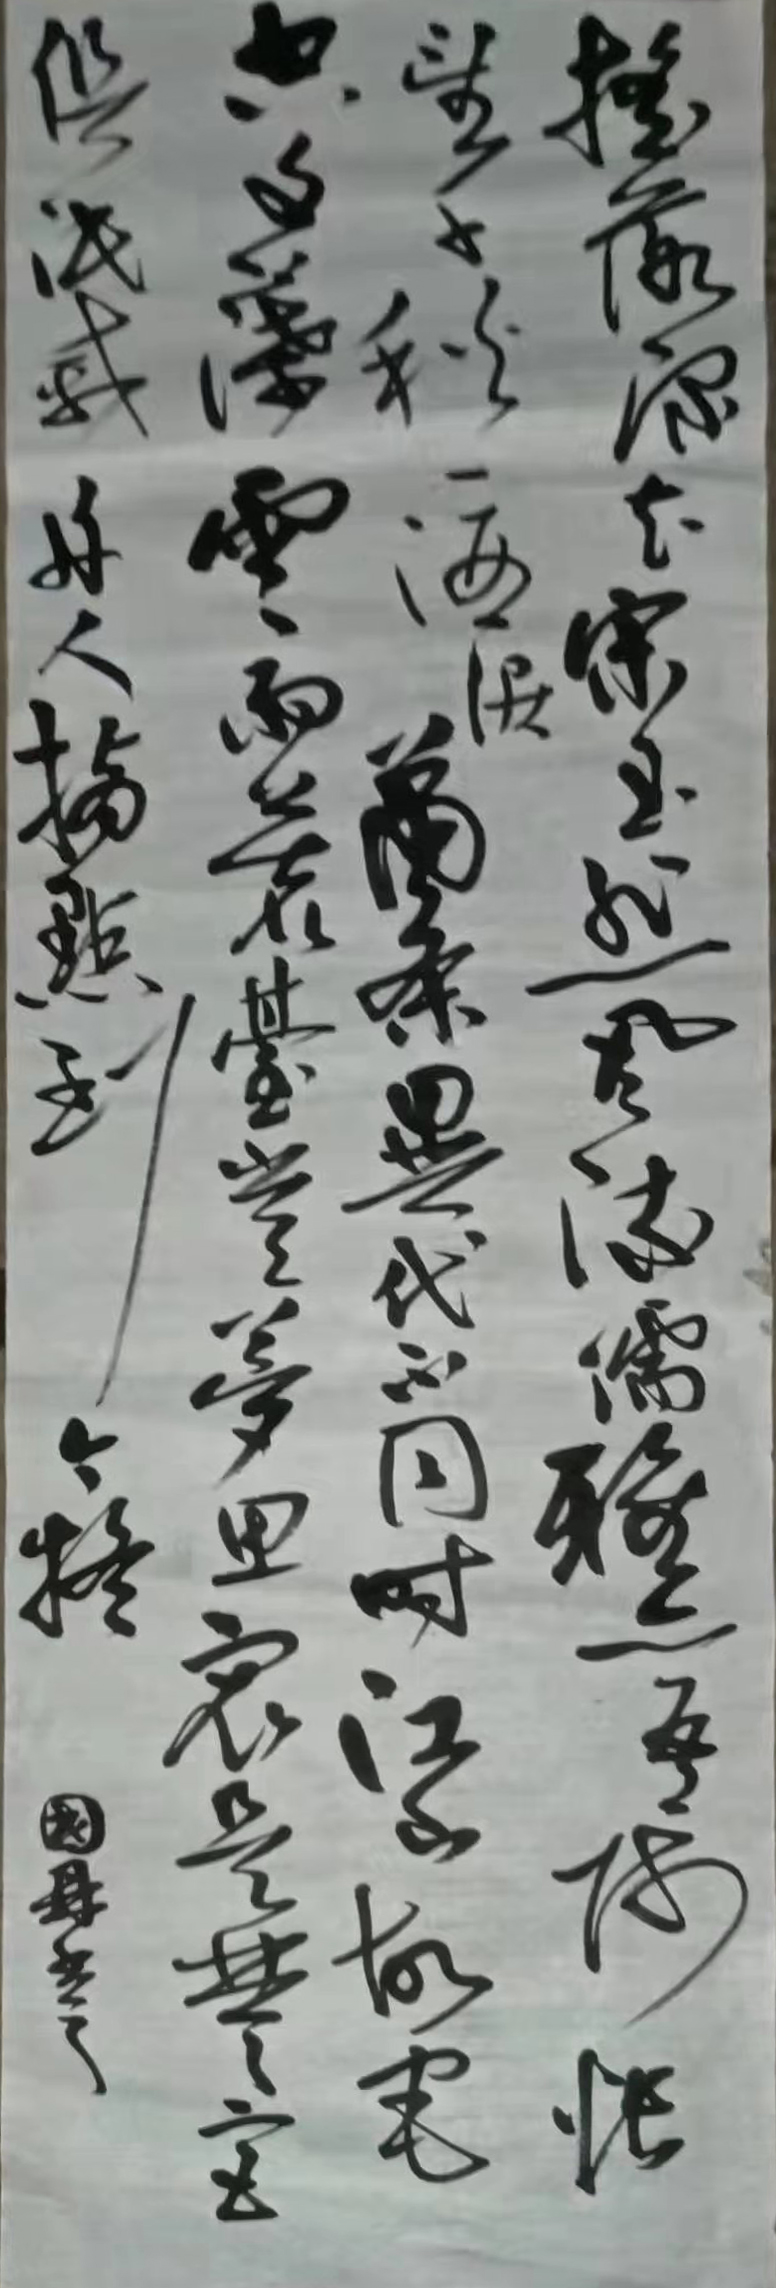 搖落深知宋玉悲風流儒雅亦吾師悵
望千秋一洒淚蕭條異代不同時江山故宅
空文藻雲雨荒臺豈夢思最是楚宮
俱泯滅舟人指點到今疑